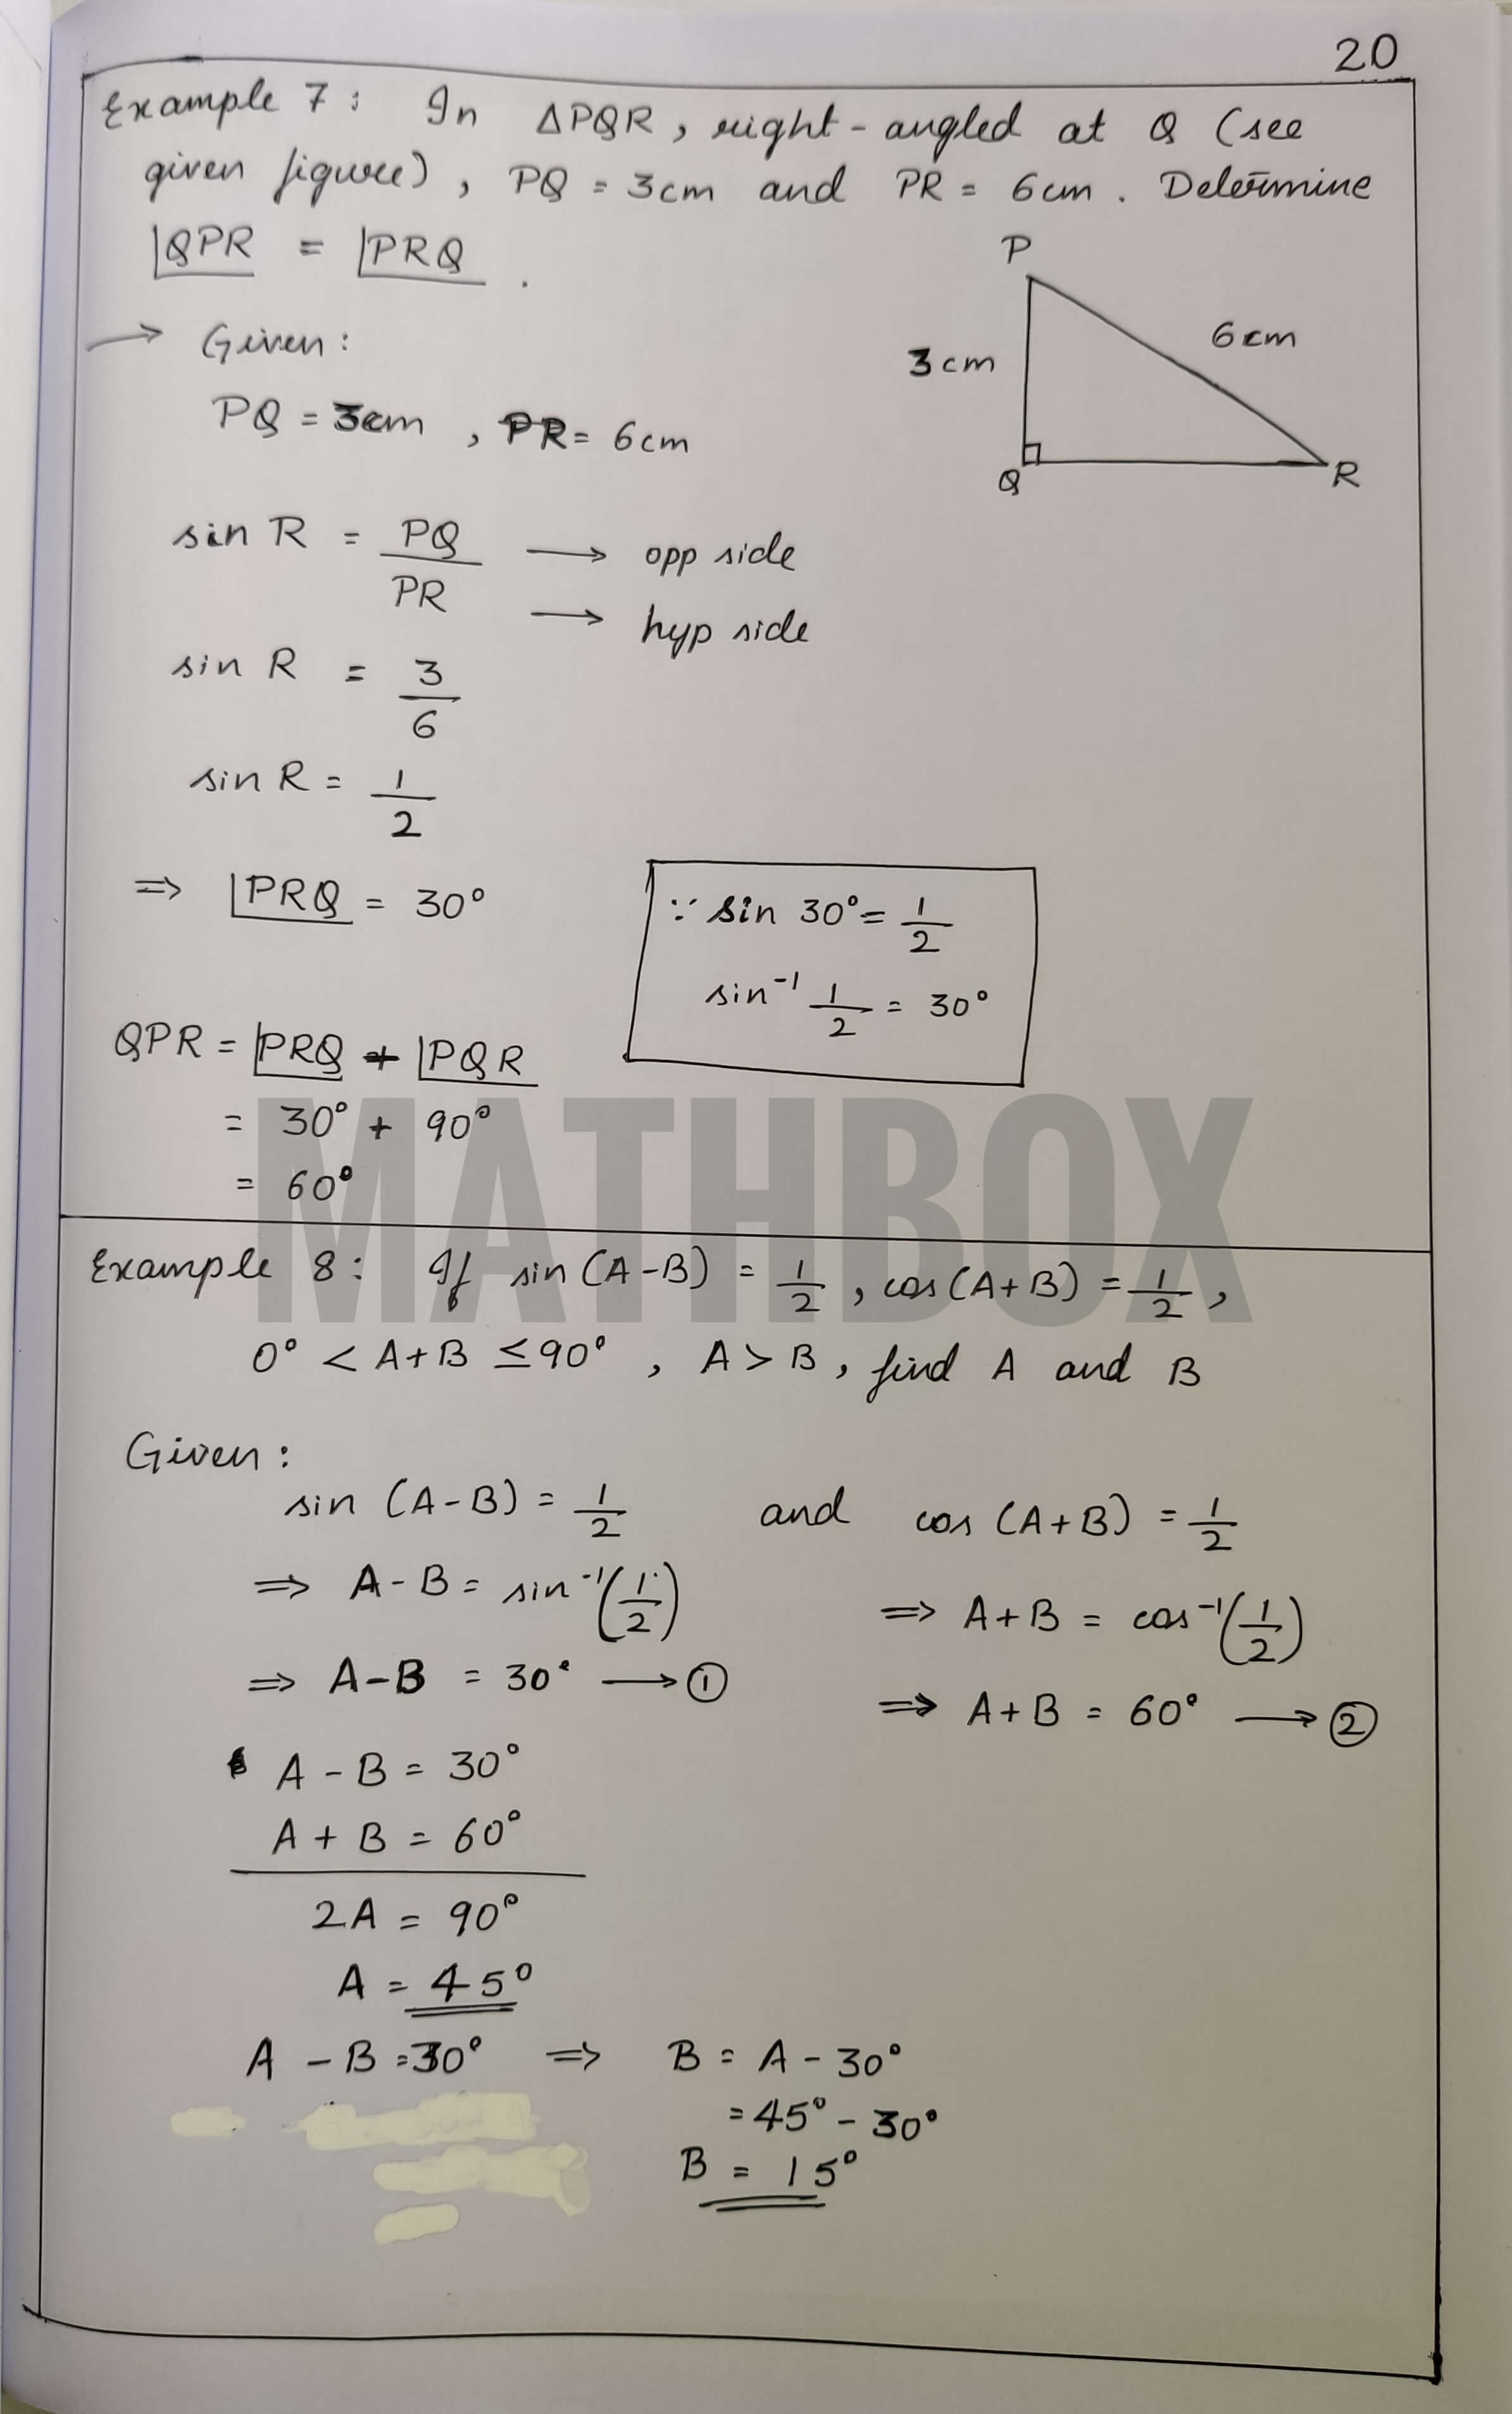 20
Example 7 : In △PQR, right-angled at Q (see
given figure), PQ = 3cm and PR = 6cm. Determine
∠QPR = ∠PRQ.
P
3cm
6cm
Q
R
→ Given:
PQ = 3cm, PR = 6cm
sin R = PQ/PR → opp side
→ hyp side
sin R = 3/6
sin R = 1/2
⇒ ∠PRQ = 30°
∵ sin 30° = 1/2
sin⁻¹ 1/2 = 30°
QPR = ∠PRQ + ∠PQR
= 30° + 90°
= 60°
MATHBOX
Example 8 : If sin (A-B) = 1/2, cos (A+B) = 1/2,
0° < A+B ≤ 90°, A > B, find A and B
Given:
sin (A-B) = 1/2 and cos (A+B) = 1/2
⇒ A-B = sin⁻¹(1/2)
⇒ A+B = cos⁻¹(1/2)
⇒ A-B = 30° → ①
⇒ A+B = 60° → ②
A - B = 30°
A + B = 60°
2A = 90°
A = 45°
A - B = 30° ⇒ B = A - 30°
= 45° - 30°
B = 15°